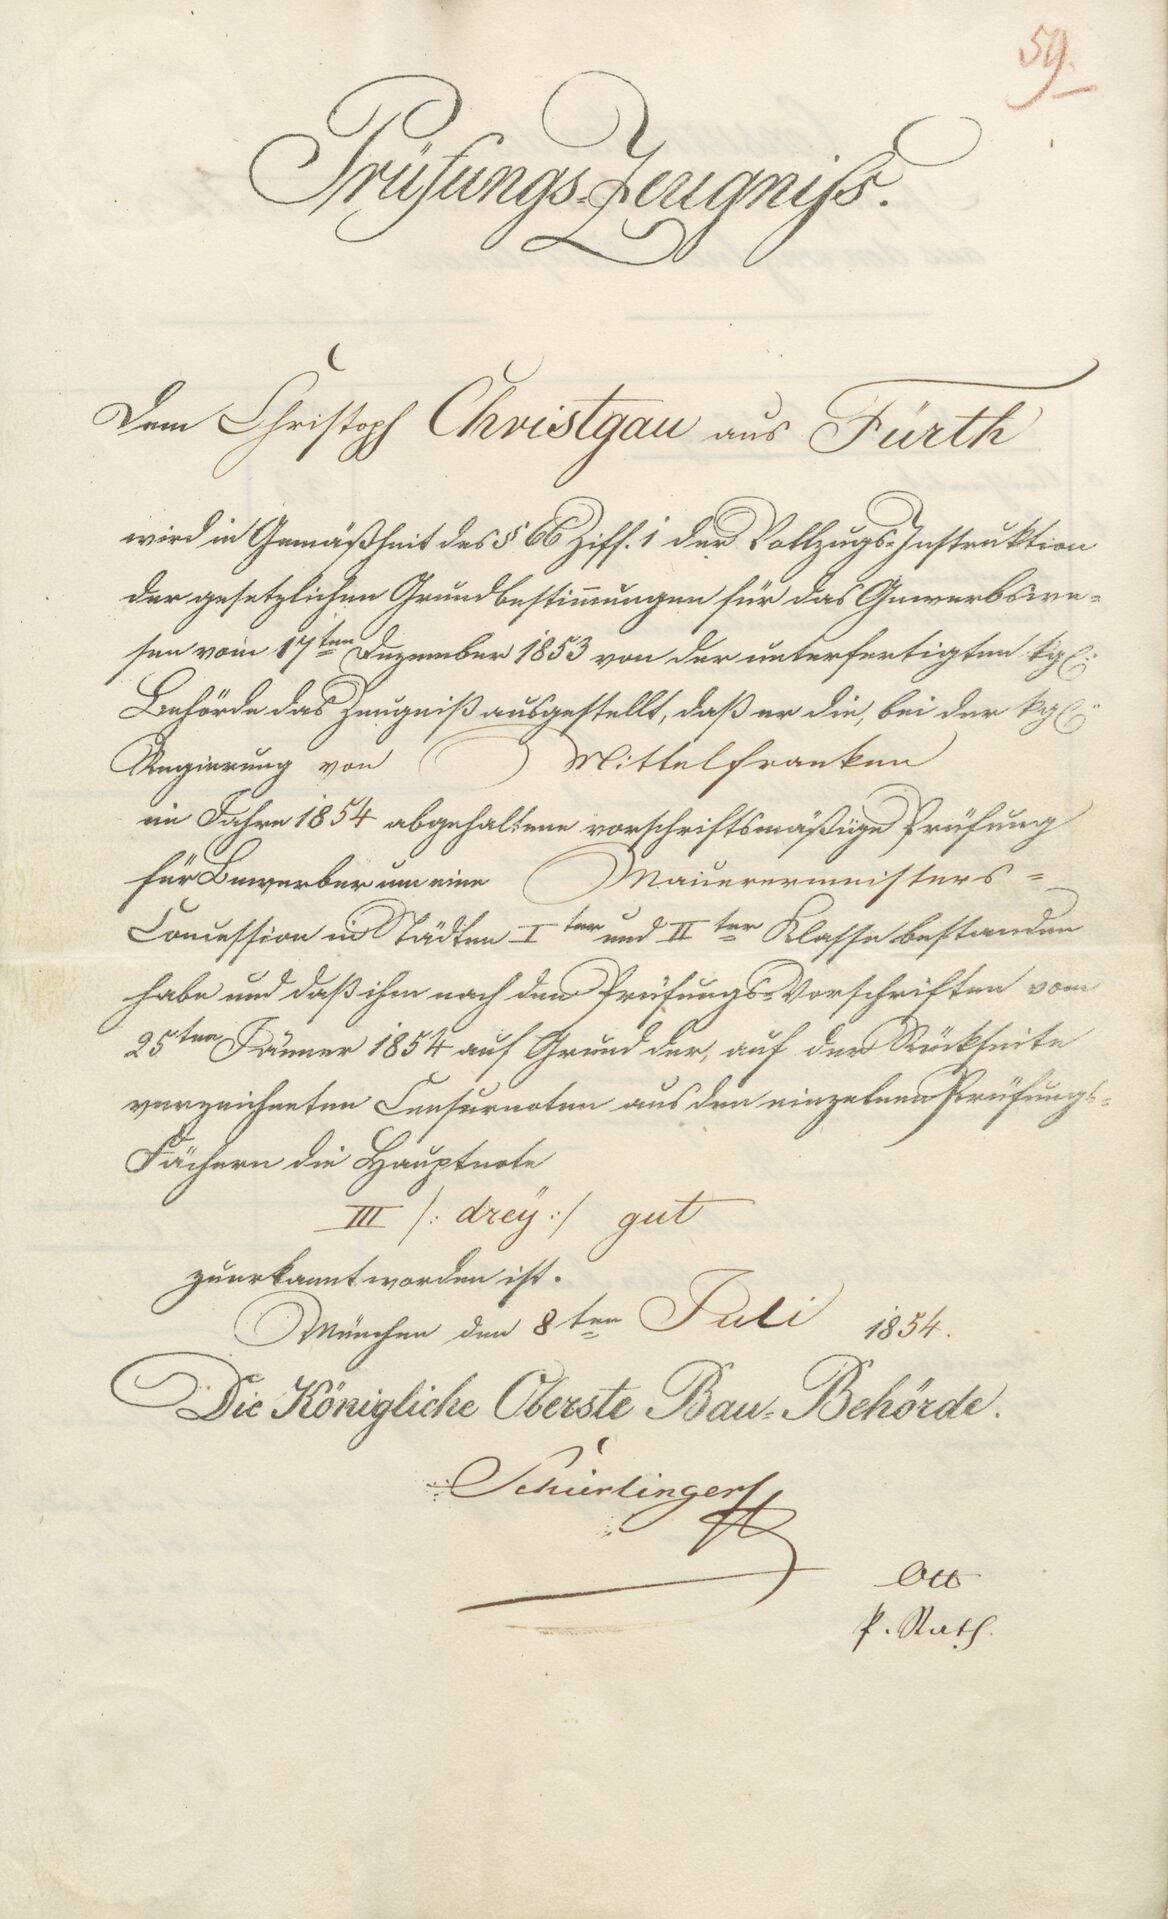 59.
Prüfungs-Zeugniss.
Dem Christoph Christgau aus Fürth
wird in Gemäßheit des § 66 Ziff. 1 der Vollzugs-Instruktion
der gesetzlichen Grundbestimmungen für das Gewerbswe-
sen vom 17ten Dezember 1853 von der unterfertigten kgl:
Behörde das Zeugniß ausgestellt, daß er die, bei der kgl:
Regierung von Mittelfranken
im Jahre 1854 abgehaltene vorschriftsmäßige Prüfung
für Bewerber um eine Mauerermeisters-
Concession in Städten Iter und IIter Klasse bestanden
habe und daß ihm nach den Prüfungs-Vorschriften vom
25ten Jänner 1854 auf Grund der, auf der Rückseite
verzeichneten Censurnoten aus den einzelnen Prüfungs-
Fächern die Hauptnote
III /: dreÿ :/ gut
zuerkannt worden ist.
München den 8ten Juli 1854.
Die Königliche Oberste Bau-Behörde.
Schierlinger
Ott
p. Rath.